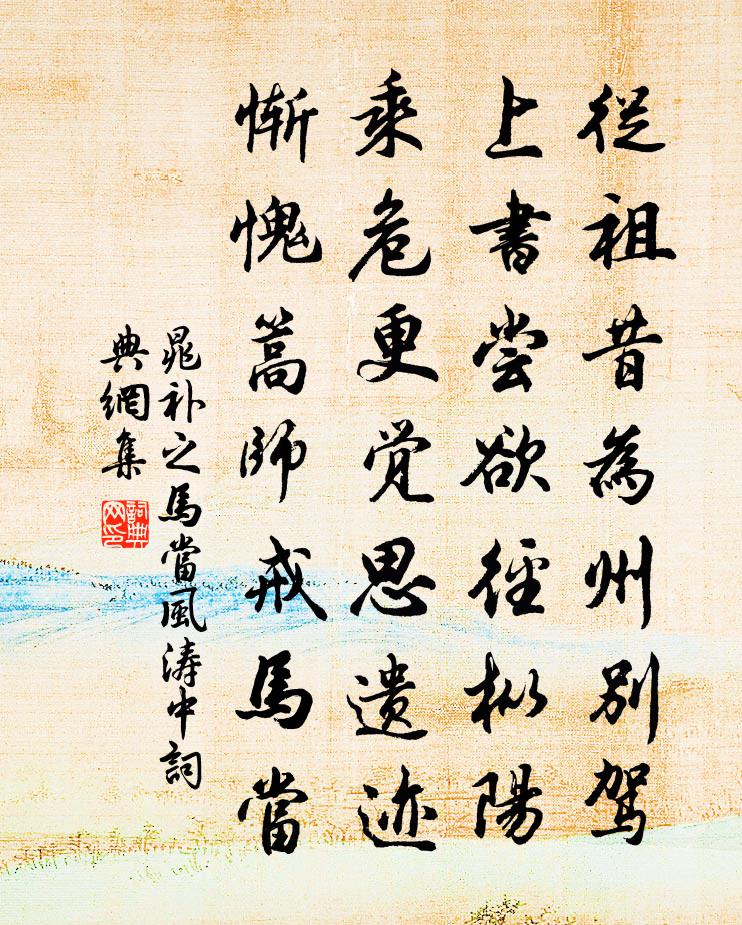 從祖昔為州別駕
上書尝欲徑枞陽
乘危更覺思遗迹
慚愧蒿師戒馬當
晁补之馬當風涛中詞
典網集
詞典
网印